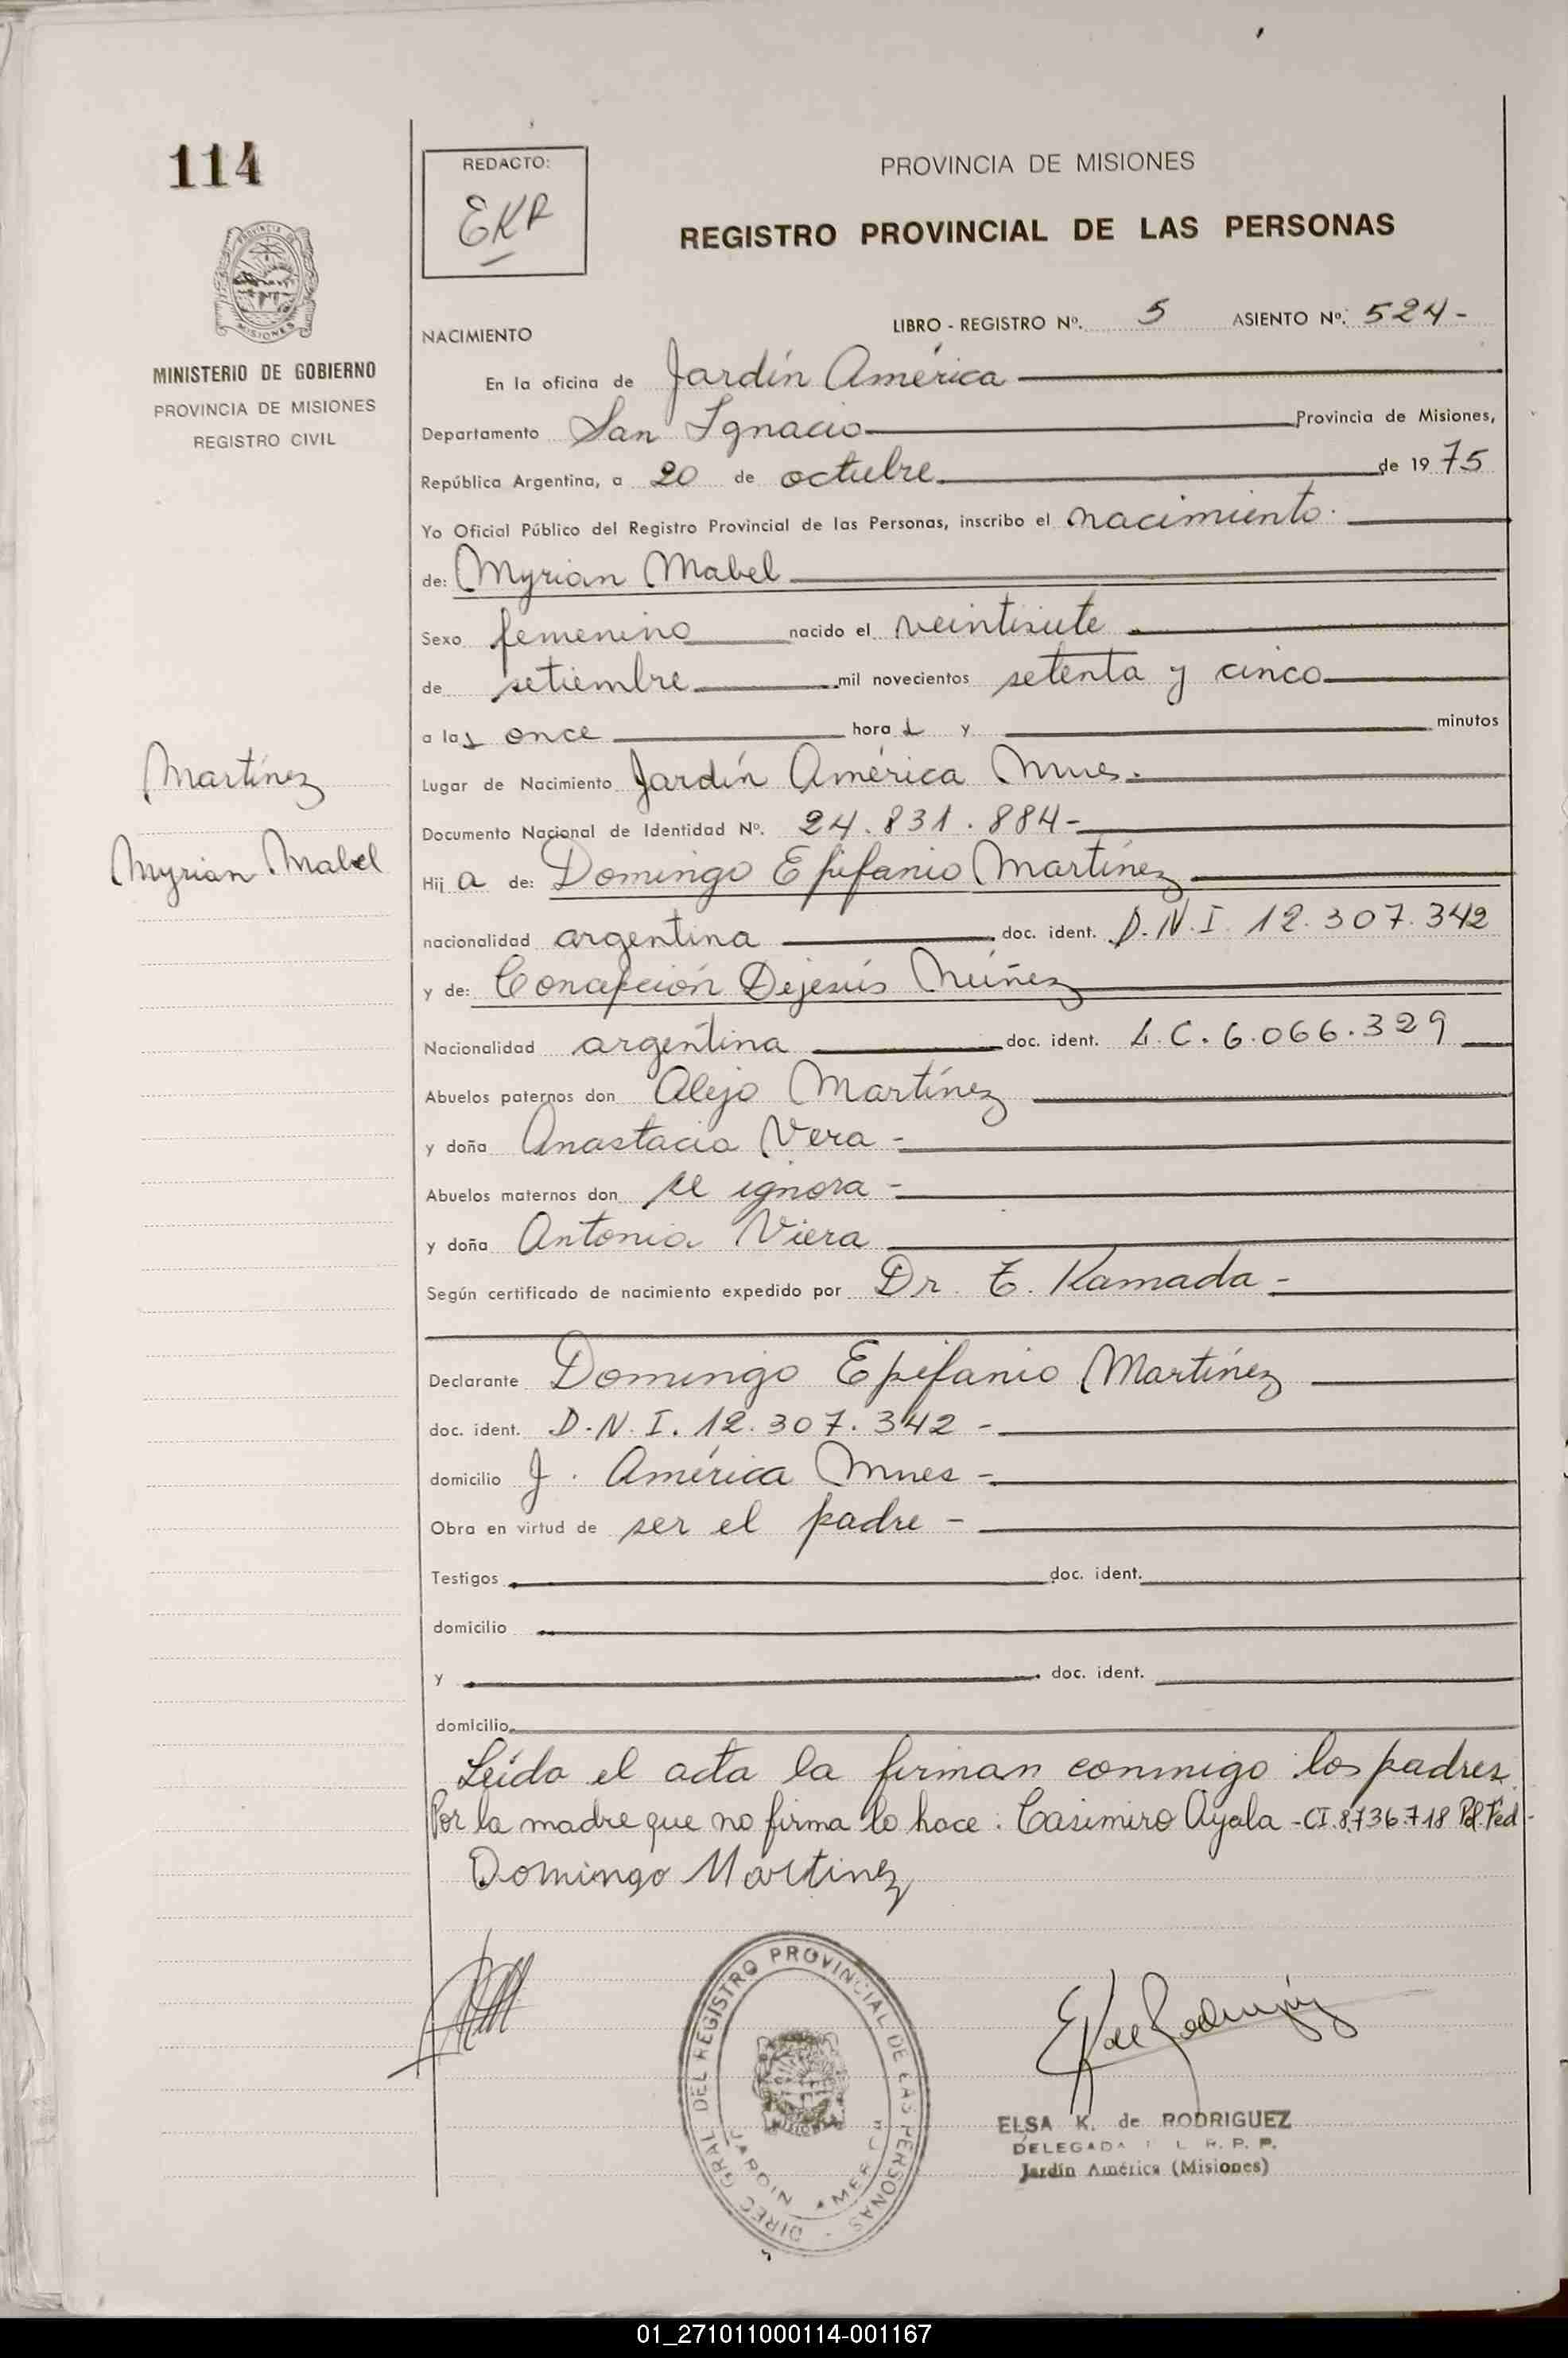 114
MINISTERIO DE GOBIERNO
PROVINCIA DE MISIONES
REGISTRO CIVIL
Martínez
Myrian Mabel
REDACTO:
EKR
PROVINCIA DE MISIONES
REGISTRO PROVINCIAL DE LAS PERSONAS
LIBRO - REGISTRO Nº. 5 ASIENTO Nº. 524-
NACIMIENTO
En la oficina de Jardín América
Departamento San Ignacio Provincia de Misiones,
República Argentina, a 20 de octubre de 1975
Yo Oficial Público del Registro Provincial de las Personas, inscribo el nacimiento.
de: Myrian Mabel
Sexo femenino nacido el veintisiete
de setiembre mil novecientos setenta y cinco
a las once horas y minutos
Lugar de Nacimiento Jardín América Mnes.
Documento Nacional de Identidad Nº. 24.831.884-
Hija de: Domingo Epifanio Martínez
nacionalidad argentina doc. ident. D.N.I. 12.307.342
y de: Concepción Dejesús Núñez
Nacionalidad argentina doc. ident. L.C. 6.066.329
Abuelos paternos don Alejo Martínez
y doña Anastacia Vera -
Abuelos maternos don se ignora -
y doña Antonia Viera
Según certificado de nacimiento expedido por Dr. T. Kamada -
Declarante Domingo Epifanio Martínez
doc. ident. D.N.I. 12.307.342 -
domicilio J. América Mnes -
Obra en virtud de ser el padre -
Testigos doc. ident.
domicilio
y doc. ident.
domicilio
Leída el acta la firman conmigo los padres.
Por la madre que no firma lo hace: Casimiro Ayala - CI. 8.736.718 Pol. Fed -
Domingo Martinez
DIREC GRAL DEL REGISTRO PROVINCIAL DE LAS PERSONAS -
MISIONES
JARDIN AMERICA
EK de Rodriguez
ELSA K. de RODRIGUEZ
DELEGADA R. P. P.
Jardín América (Misiones)
01_271011000114-001167